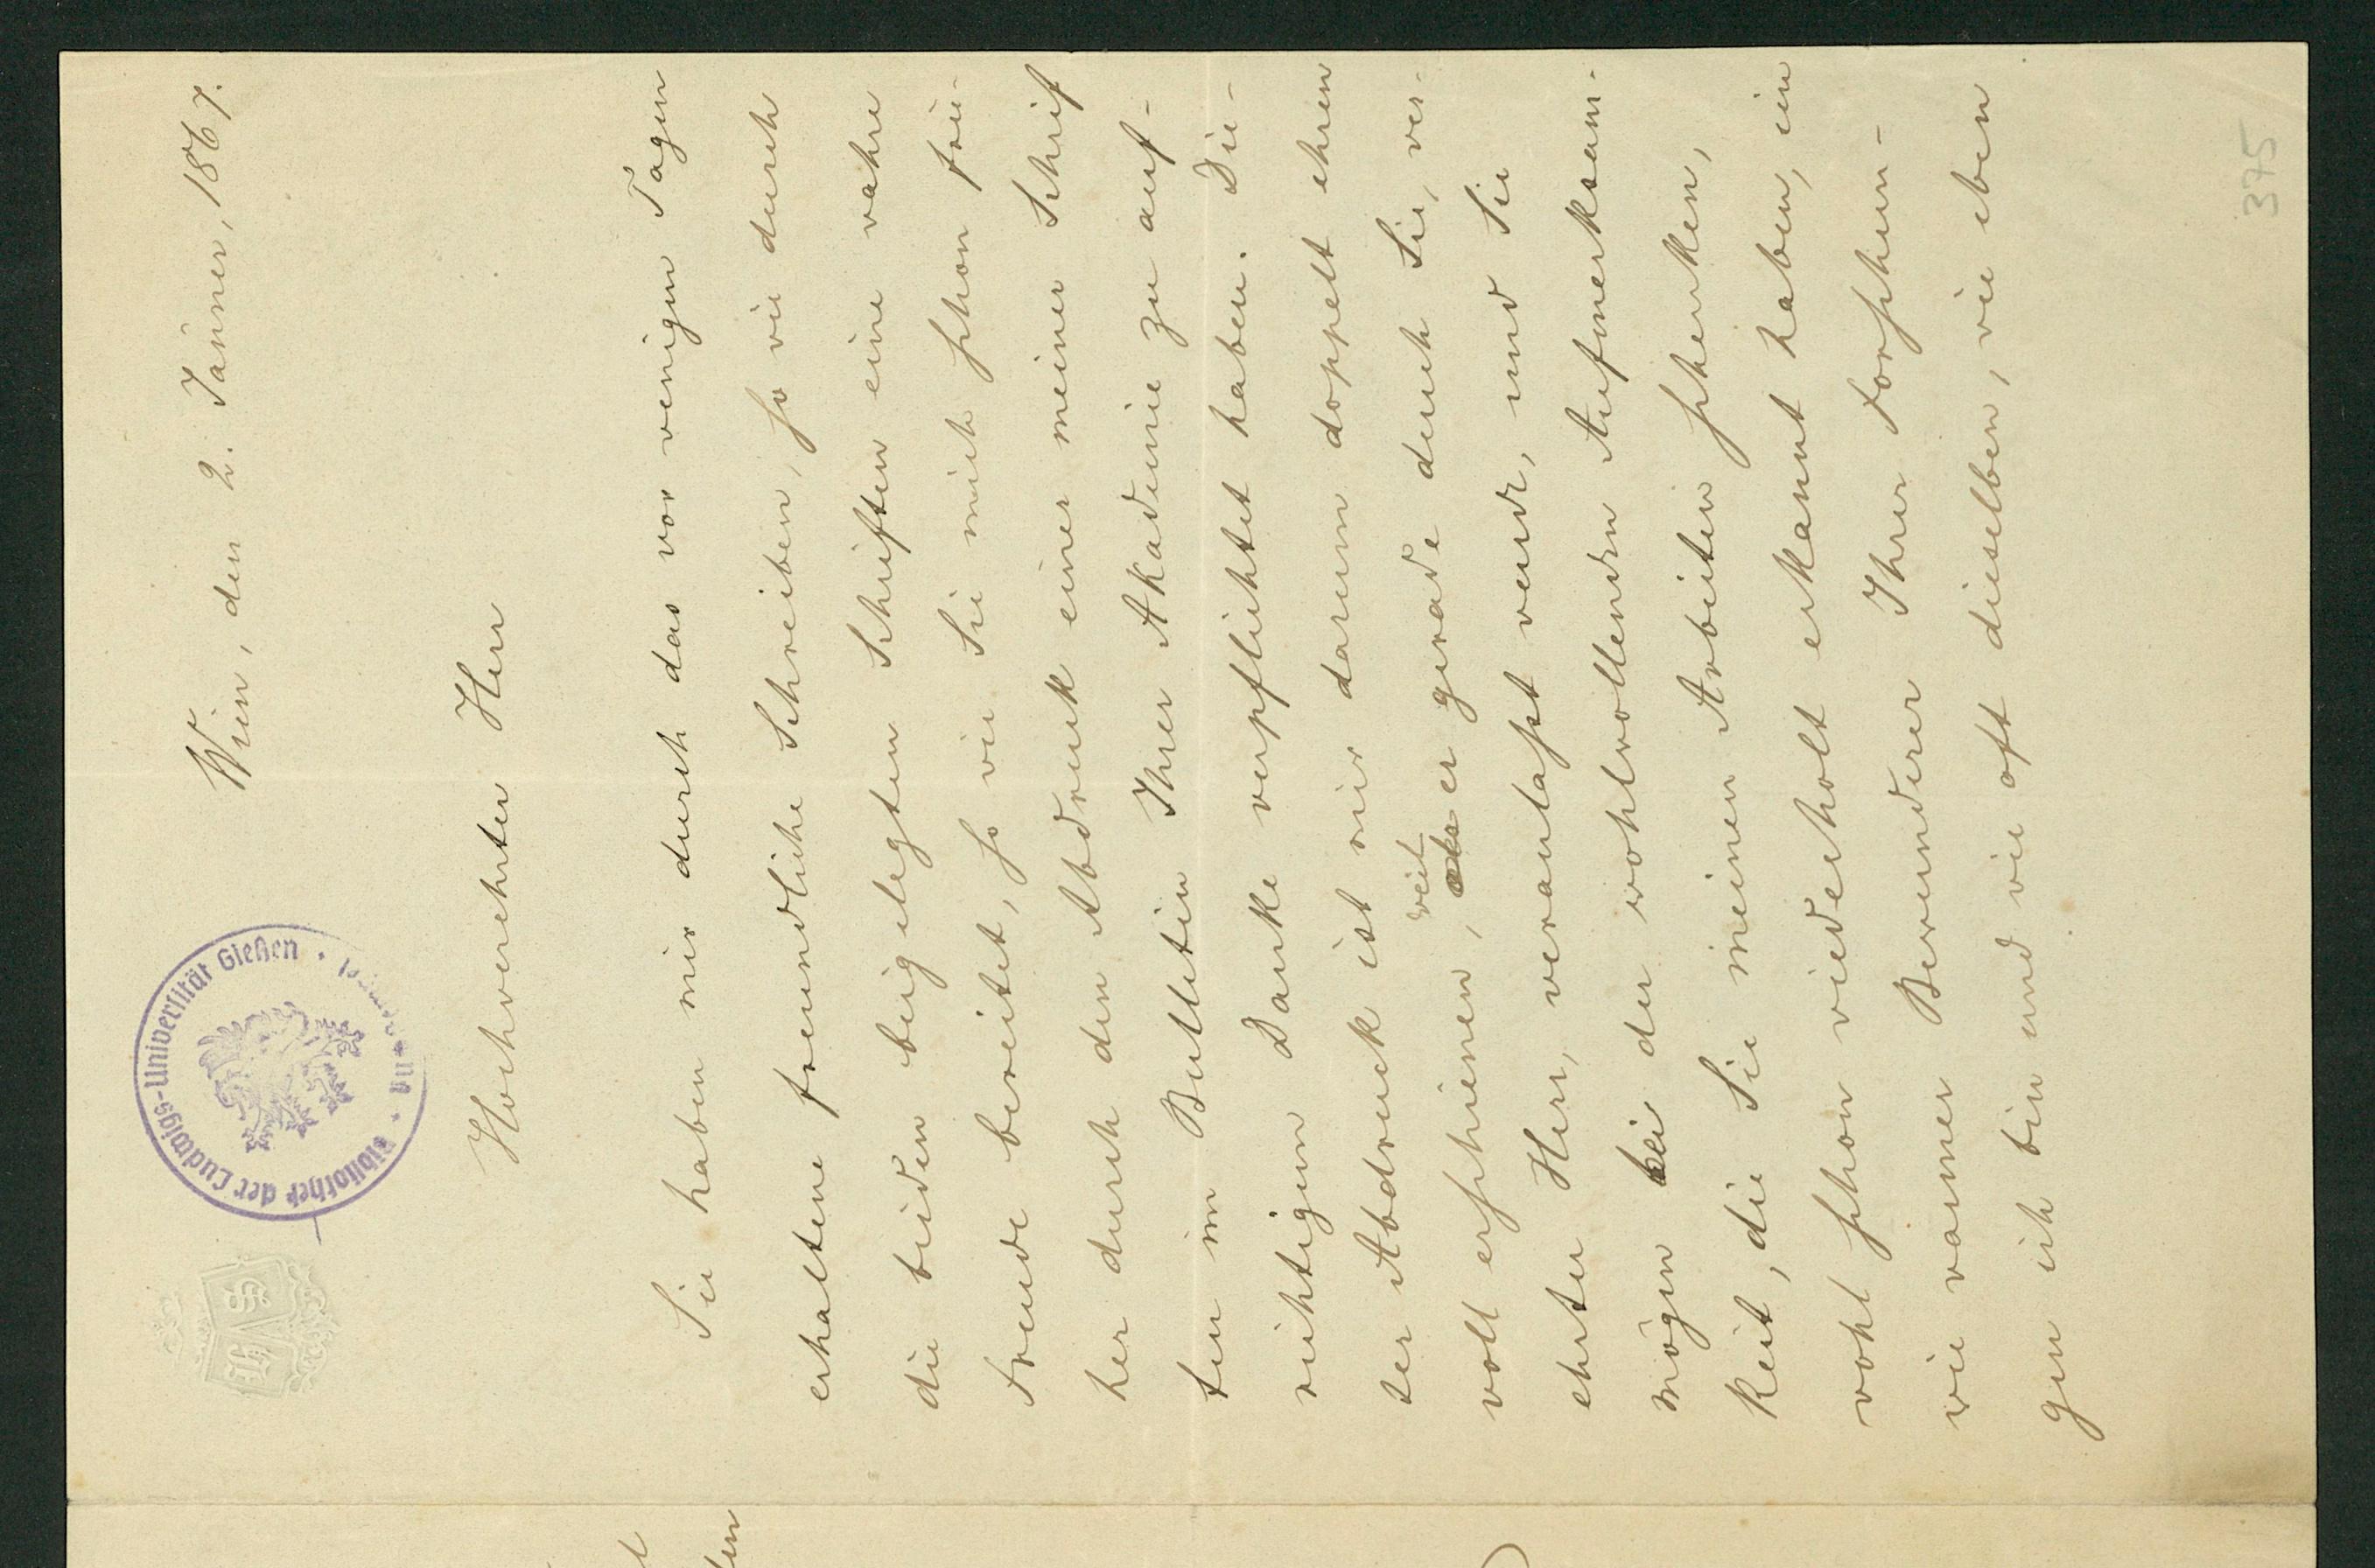 Wien, den 2. Jänner, 1867.
Bibliothek der Ludwigs-Universität Gießen
HS
Hochverehrter Herr
Sie haben mir durch das vor wenigen Tagen
erhaltene freundliche Schreiben, so wie durch
die beiden beigelegten Schriften eine wahre
Freude bereitet, so wie Sie mich schon frü-
her durch den Abdruck einer meiner Schrif
ten im Bulletin Ihrer Akademie zu auf-
richtigem Danke verpflichtet haben. Die-
ser Abdruck ist mir darum doppelt ehren
voll erschienen, weil er gerade durch Sie, ver-
ehrter Herr, veranlasst wurde, und Sie
mögen bei der wohlwollenden Aufmerksam-
keit, die Sie meinen Arbeiten schenken,
wohl schon wiederholt erkannt haben, ein
wie warmer Bewunderer Ihrer Forschun-
gen ich bin und wie oft dieselben, wie eben
375